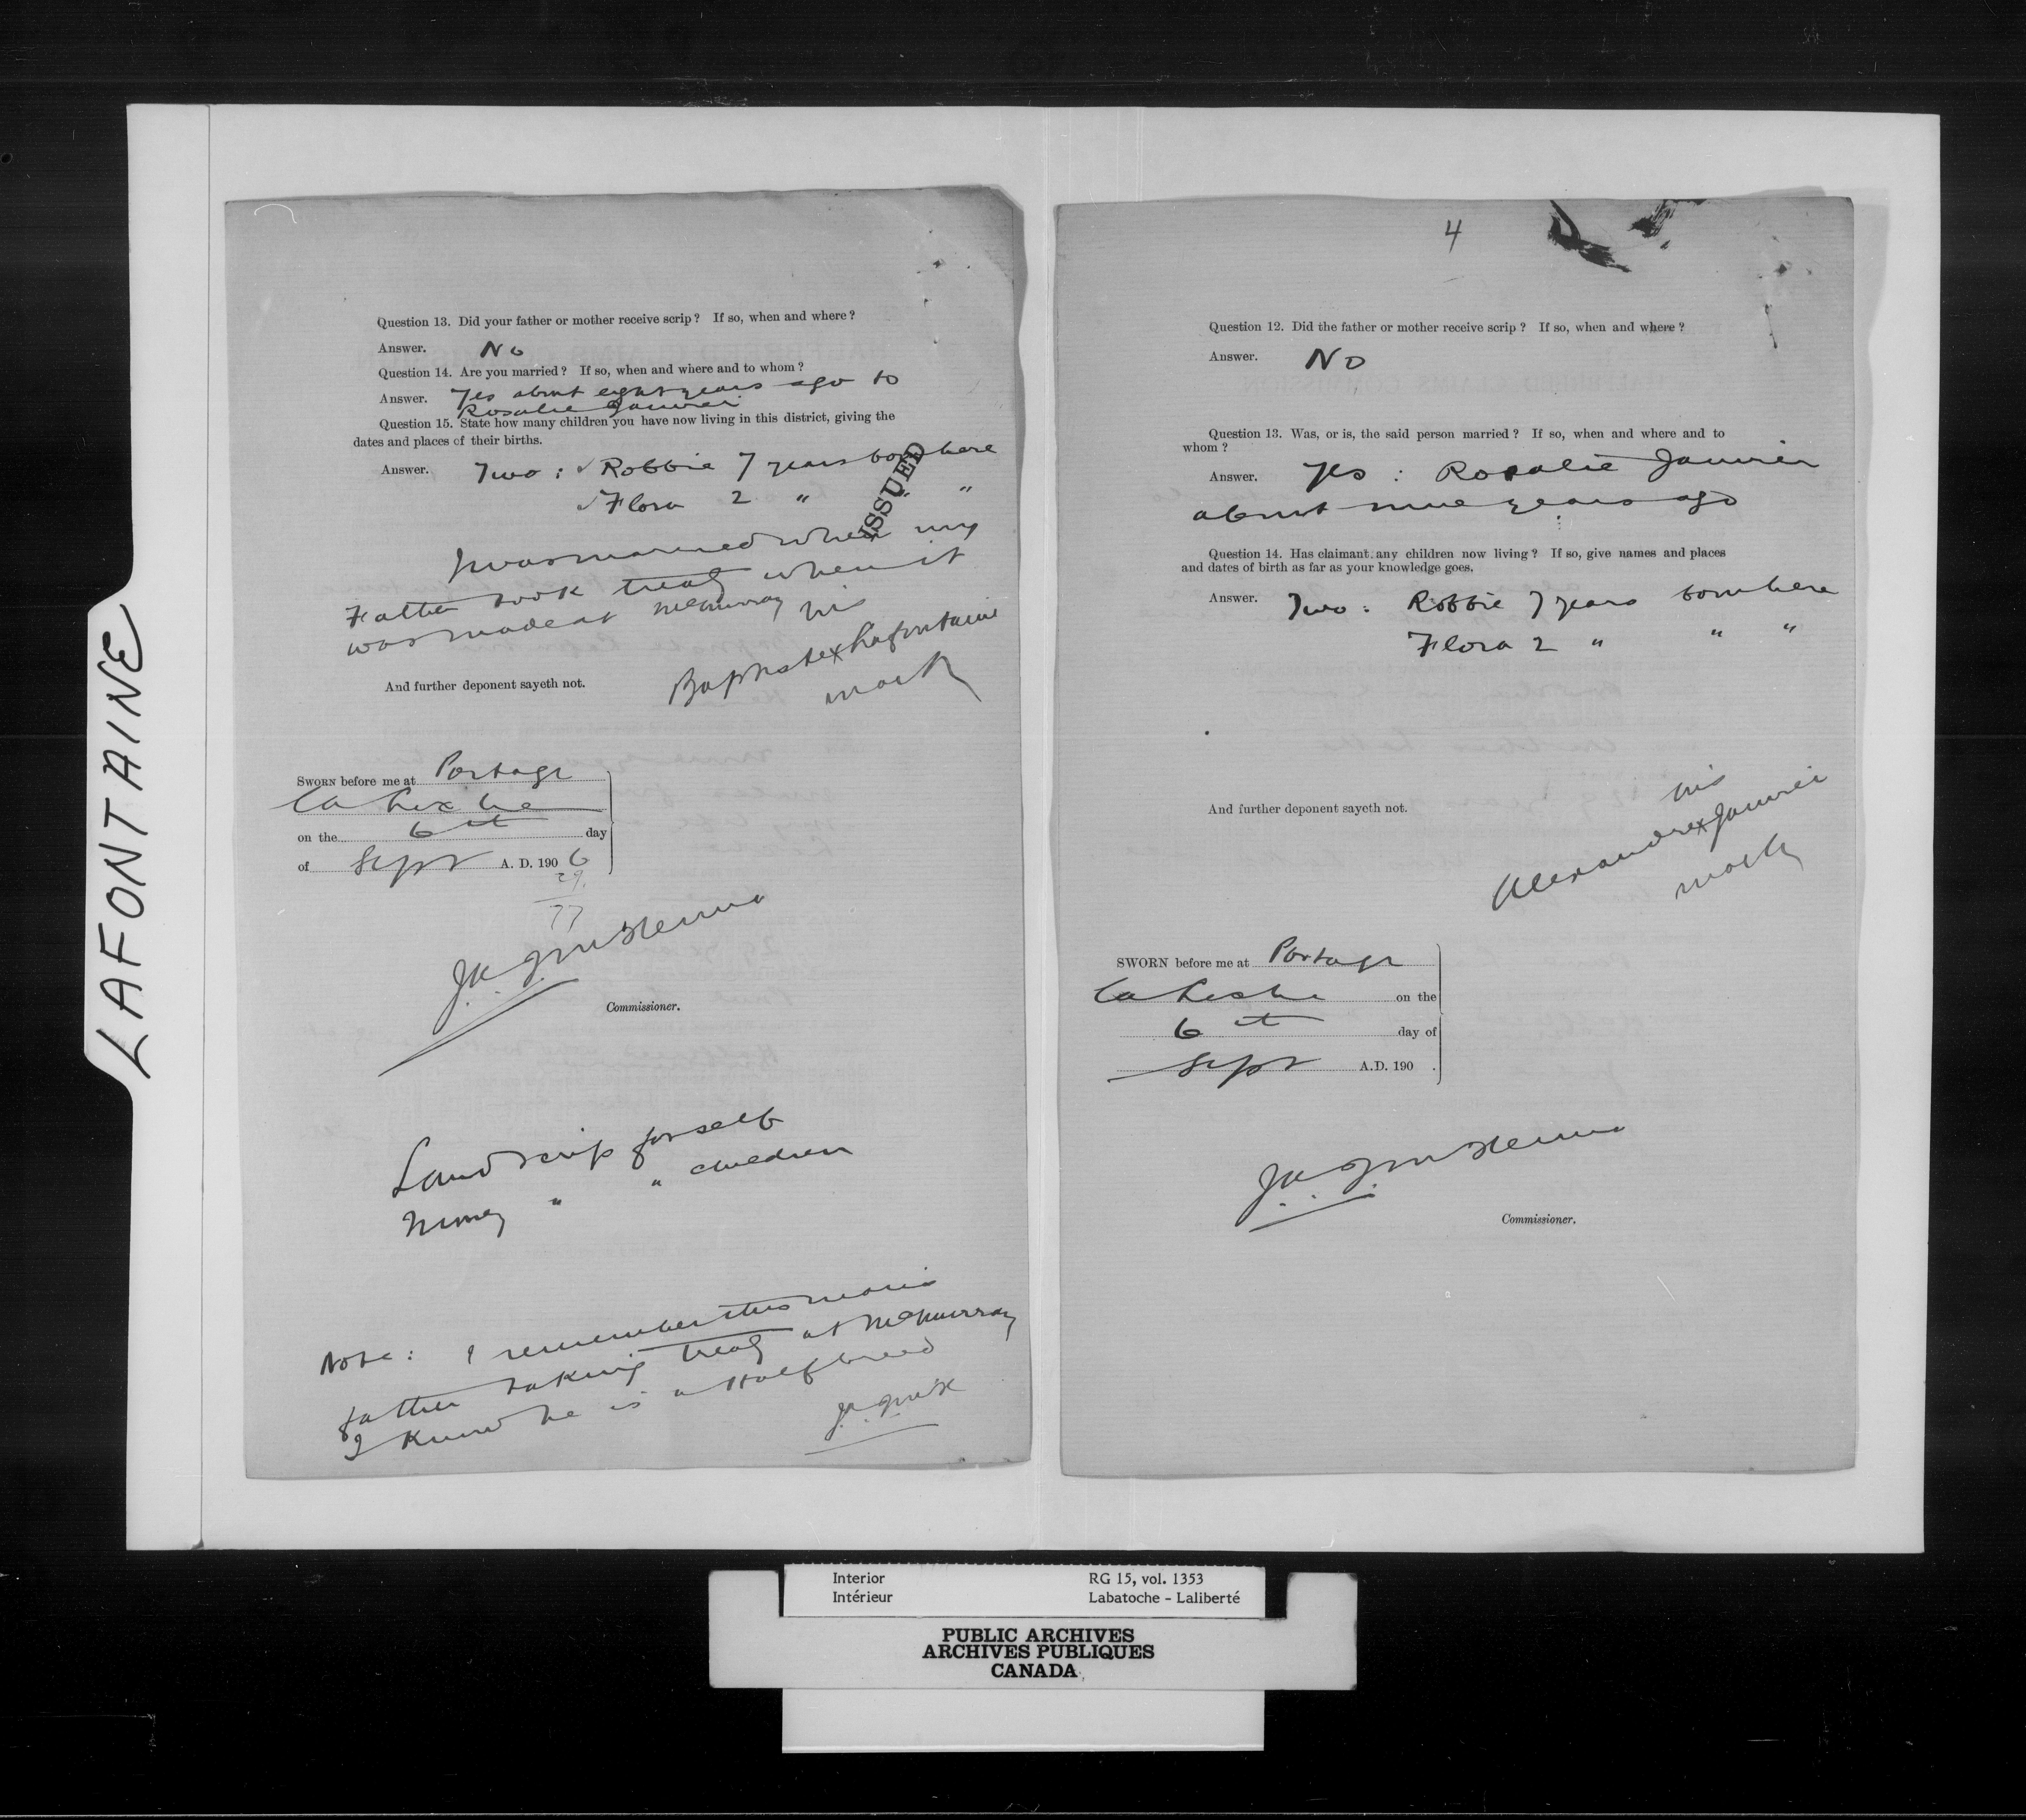 LAFONTAINE
Question 13. Did your father or mother receive scrip? If so, when and where?
Answer. No
Question 14. Are you married? If so, when and where and to whom?
Answer. Yes about eight years ago to
Rosalie Janvier
Question 15. State how many children you have now living in this district, giving the
dates and places of their births.
Answer. Two: ✓ Robbie 7 years born here
✓ Flora 2 " " "
ISSUED
I was married when my
Father took treaty when it
was made at McMurray
his
Baptiste x Lafontaine
mark
And further deponent sayeth not.
SWORN before me at Portage
La Loche
on the 6th day
of Sept A. D. 190 6
29
77
J.A. J. McKenna
Commissioner.
Land scrip for self
Money " " children
Note: I remember this man's
father taking treaty at McMurray
I know he is a Halfbreed
J.A. J. McK
4
Question 12. Did the father or mother receive scrip? If so, when and where?
Answer. No
Question 13. Was, or is, the said person married? If so, when and where and to
whom?
Answer. Yes: Rosalie Janvier
about nine years ago
Question 14. Has claimant any children now living? If so, give names and places
and dates of birth as far as your knowledge goes.
Answer. Two: Robbie 7 years born here
Flora 2 " " "
And further deponent sayeth not.
his
Alexandre x Janvier
mark
SWORN before me at Portage
La Loche on the
6th day of
Sept A.D. 190 .
J.A. J. McKenna
Commissioner.
Interior RG 15, vol. 1353
Intérieur Labatoche - Laliberté
PUBLIC ARCHIVES
ARCHIVES PUBLIQUES
CANADA